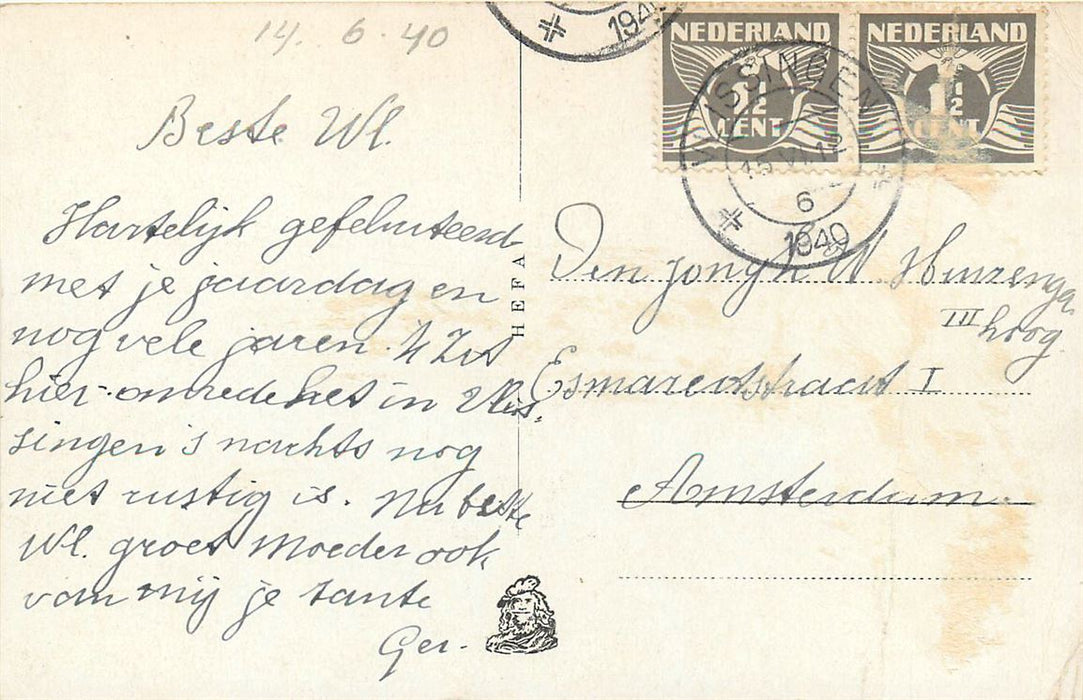 14. 6. 40
Beste Wl.
Hartelijk gefeliciteerd
met je jaardag en
nog vele jaren. 'k Zit
hier omrede het in Vlis,
singen 's nachts nog
niet rustig is. Nu beste
Wl. groet Moeder ook
van mij je tante
Ger.
HEFA
1940
NEDERLAND
1½
CENT
NEDERLAND
1½
CENT
VLISSINGEN
15 VI 12
6
1940
Den jongh W. Huizenga
III hoog
Esmarectstraat I
Amsterdam.